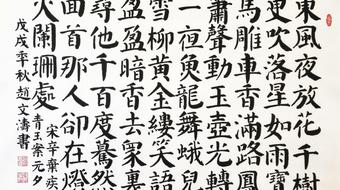 東風夜放花千樹
更吹落星如雨寶
馬雕車香滿路鳳
簫聲動玉壺光轉
一亱魚龍舞蛾兒
雪柳黃金縷笑語
盈盈暗香去眾裏
尋他千百度驀然
囬首那人卻在燈
火闌珊處
宋辛棄疾
青玉案元夕
戊戌年秋趙文濤書